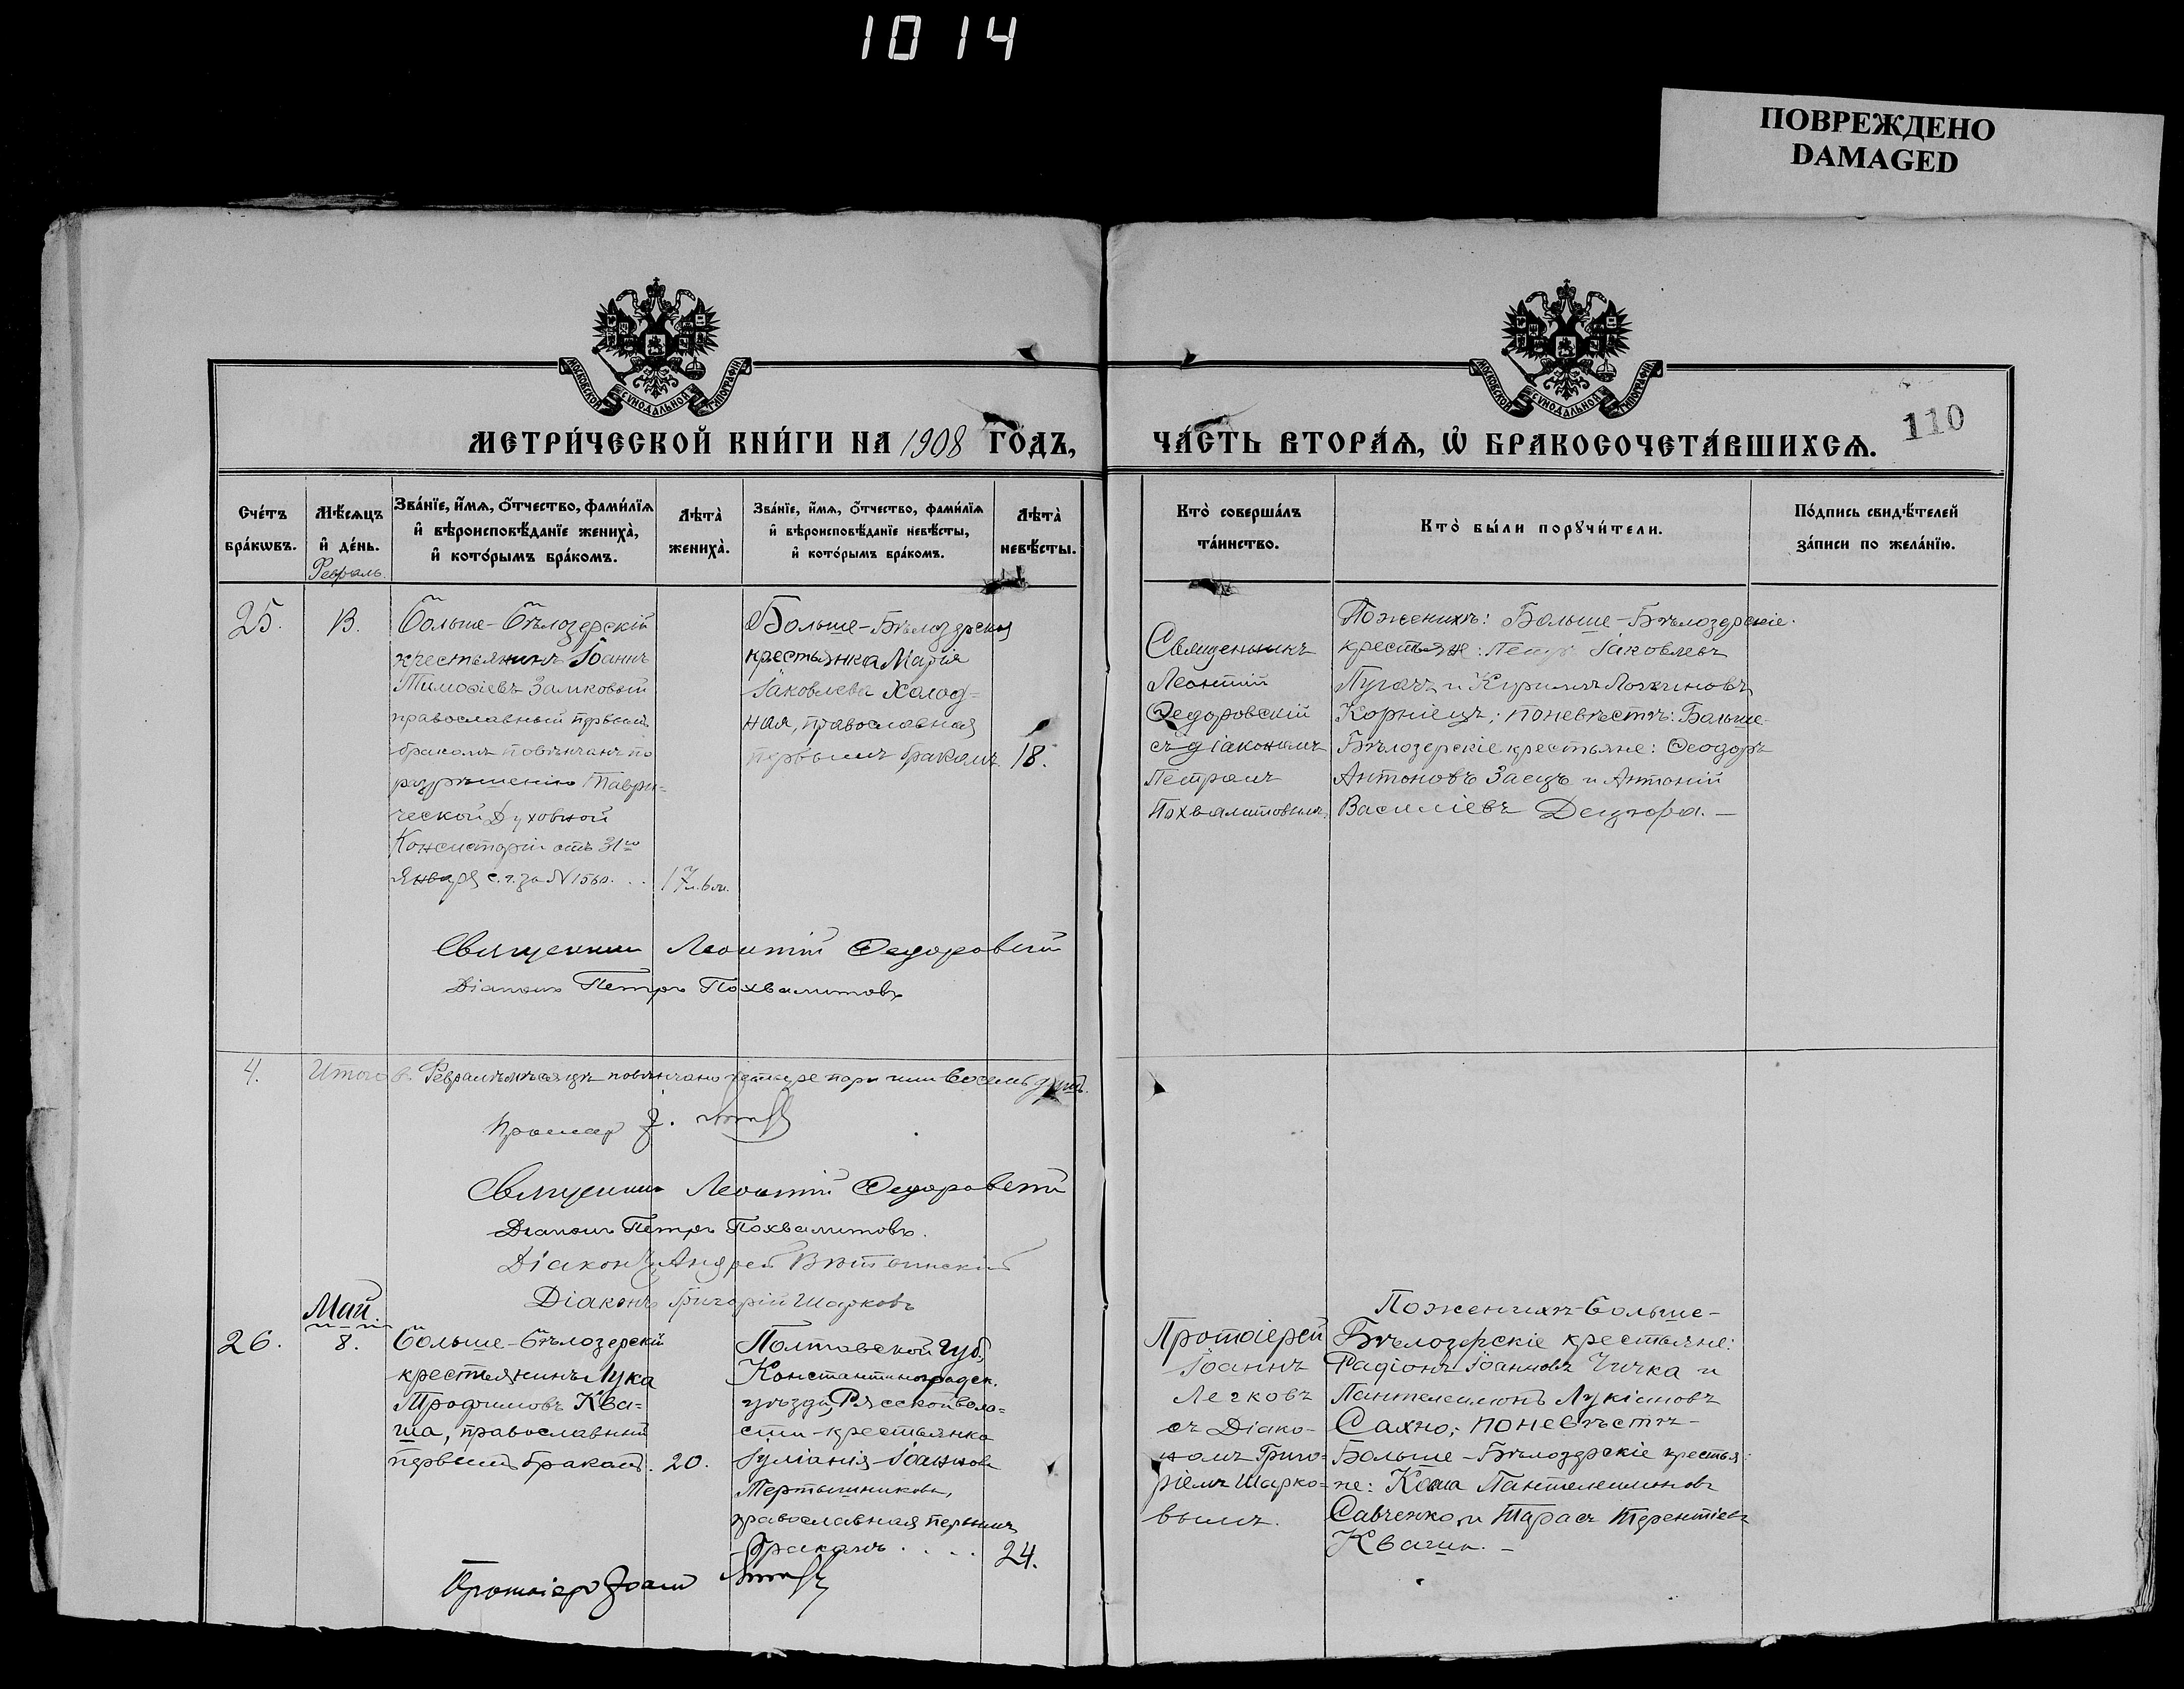 1014
ПОВРЕЖДЕНО
DAMAGED
МОСКОВСКОЙ СѴНОДАЛЬНОЙ ТИПОГРАФІИ
МОСКОВСКОЙ СѴНОДАЛЬНОЙ ТИПОГРАФІИ
МЕТРИ́ЧЕСКОЙ КНИ́ГИ НА 1908 ГО́ДЪ,
ЧА́СТЬ ВТОРА́Ѧ, Ѡ҆ БРАКОСОЧЕТА́ВШИХСѦ.
110
Сче́тъ бра́кѡвъ.
Мѣ́сѧцъ и҆ де́нь.
Зва́нїе, и҆́мѧ, ѻ҆́тчество, фами́лїѧ и҆ вѣроисповѣ́данїе жениха̀, и҆ кото́рымъ бра́комъ.
Лѣта̀ жениха̀.
Зва́нїе, и҆́мѧ, ѻ҆́тчество, фами́лїѧ и҆ вѣроисповѣ́данїе невѣ́сты, и҆ кото́рымъ бра́комъ.
Лѣта̀ невѣ́сты.
Кто̀ соверша́лъ та́инство.
Кто̀ бы́ли порꙋчи́тели.
По́дпись свидѣ́телей за́писи по жела́нїю.
Февраль.
25.
Больше-Бѣлозерскій
крестьянинъ Іоаннъ
Тимоѳіевъ Замковый
православный первымъ
бракомъ повѣнчанъ по
разрѣшенію Таври-
ческой Духовной
Консисторіи отъ 31го
Января с. г. за № 1560. . .
17 л. 6 м.
Больше-Бѣлозерская
крестьянка Марія
Іаковлева Холод-
ная, православная
первымъ бракомъ
18.
Священникъ
Леонтій
Ѳедоровскій
съ діакономъ
Петромъ
Похвалитовымъ.
По женихѣ: Больше-Бѣлозерскіе
крестьяне: Петръ Іаковлевъ
Пугачъ и Кириллъ Логгиновъ
Корніецъ; по невѣстѣ: Больше-
Бѣлозерскіе крестьяне: Ѳеодоръ
Антоновъ Заецъ и Антоній
Василіевъ
Священникъ Леонтій Ѳедоровскій
Діаконъ Петръ Похвалитовъ
4. Итого въ Февралѣ мѣсяцѣ повѣнчано четыре пары или восемь душъ.
Священникъ Леонтій Ѳедоровскій
Діаконъ Петръ Похвалитовъ.
Діаконъ Андрей
Діаконъ Григорій Шарковъ
Май.
26.
8.
Больше-Бѣлозерскій
крестьянинъ Лука
Трофимовъ Ква-
ша, православный
первымъ бракомъ.
20.
Полтавской губ.,
Константиноградск.
уѣзда, Рясской воло-
сти-крестьянка
Іуліанія Іоаннова
Мертвишникова,
православная первымъ
бракомъ . . . .
24.
Протоіерей
Іоаннъ
Легковъ
съ Діако-
номъ Григо-
ріемъ Шарко-
вымъ.
По женихѣ-Больше-
Бѣлозерскіе крестьяне:
Радіонъ Іоанновъ Чичка и
Пантелеимонъ Лукіановъ
Сахно; по невѣстѣ-
Больше-Бѣлозерскіе крестья-
не: Косма Пантелеимоновъ
Савченко и Тарасъ Терентіевъ
Кваша. -
Протоіерей Іоаннъ